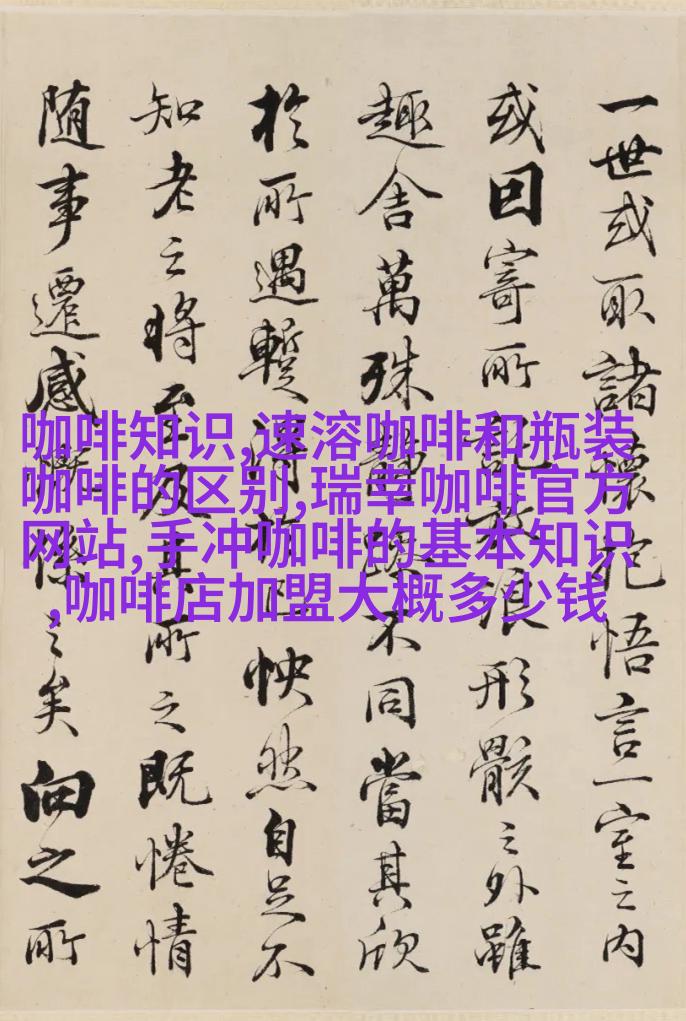 一世或取諸懷抱悟言一室之內
或因寄所託放浪形骸之外雖
趣舍萬殊靜躁不同當其欣
於所遇暫得於己怏然自足不
知老之將至及其所之既惓情
随事遷感慨係之矣向之所
咖啡知识,速溶咖啡和瓶装
咖啡的区别,瑞幸咖啡官方
网站,手冲咖啡的基本知识
,咖啡店加盟大概多少钱